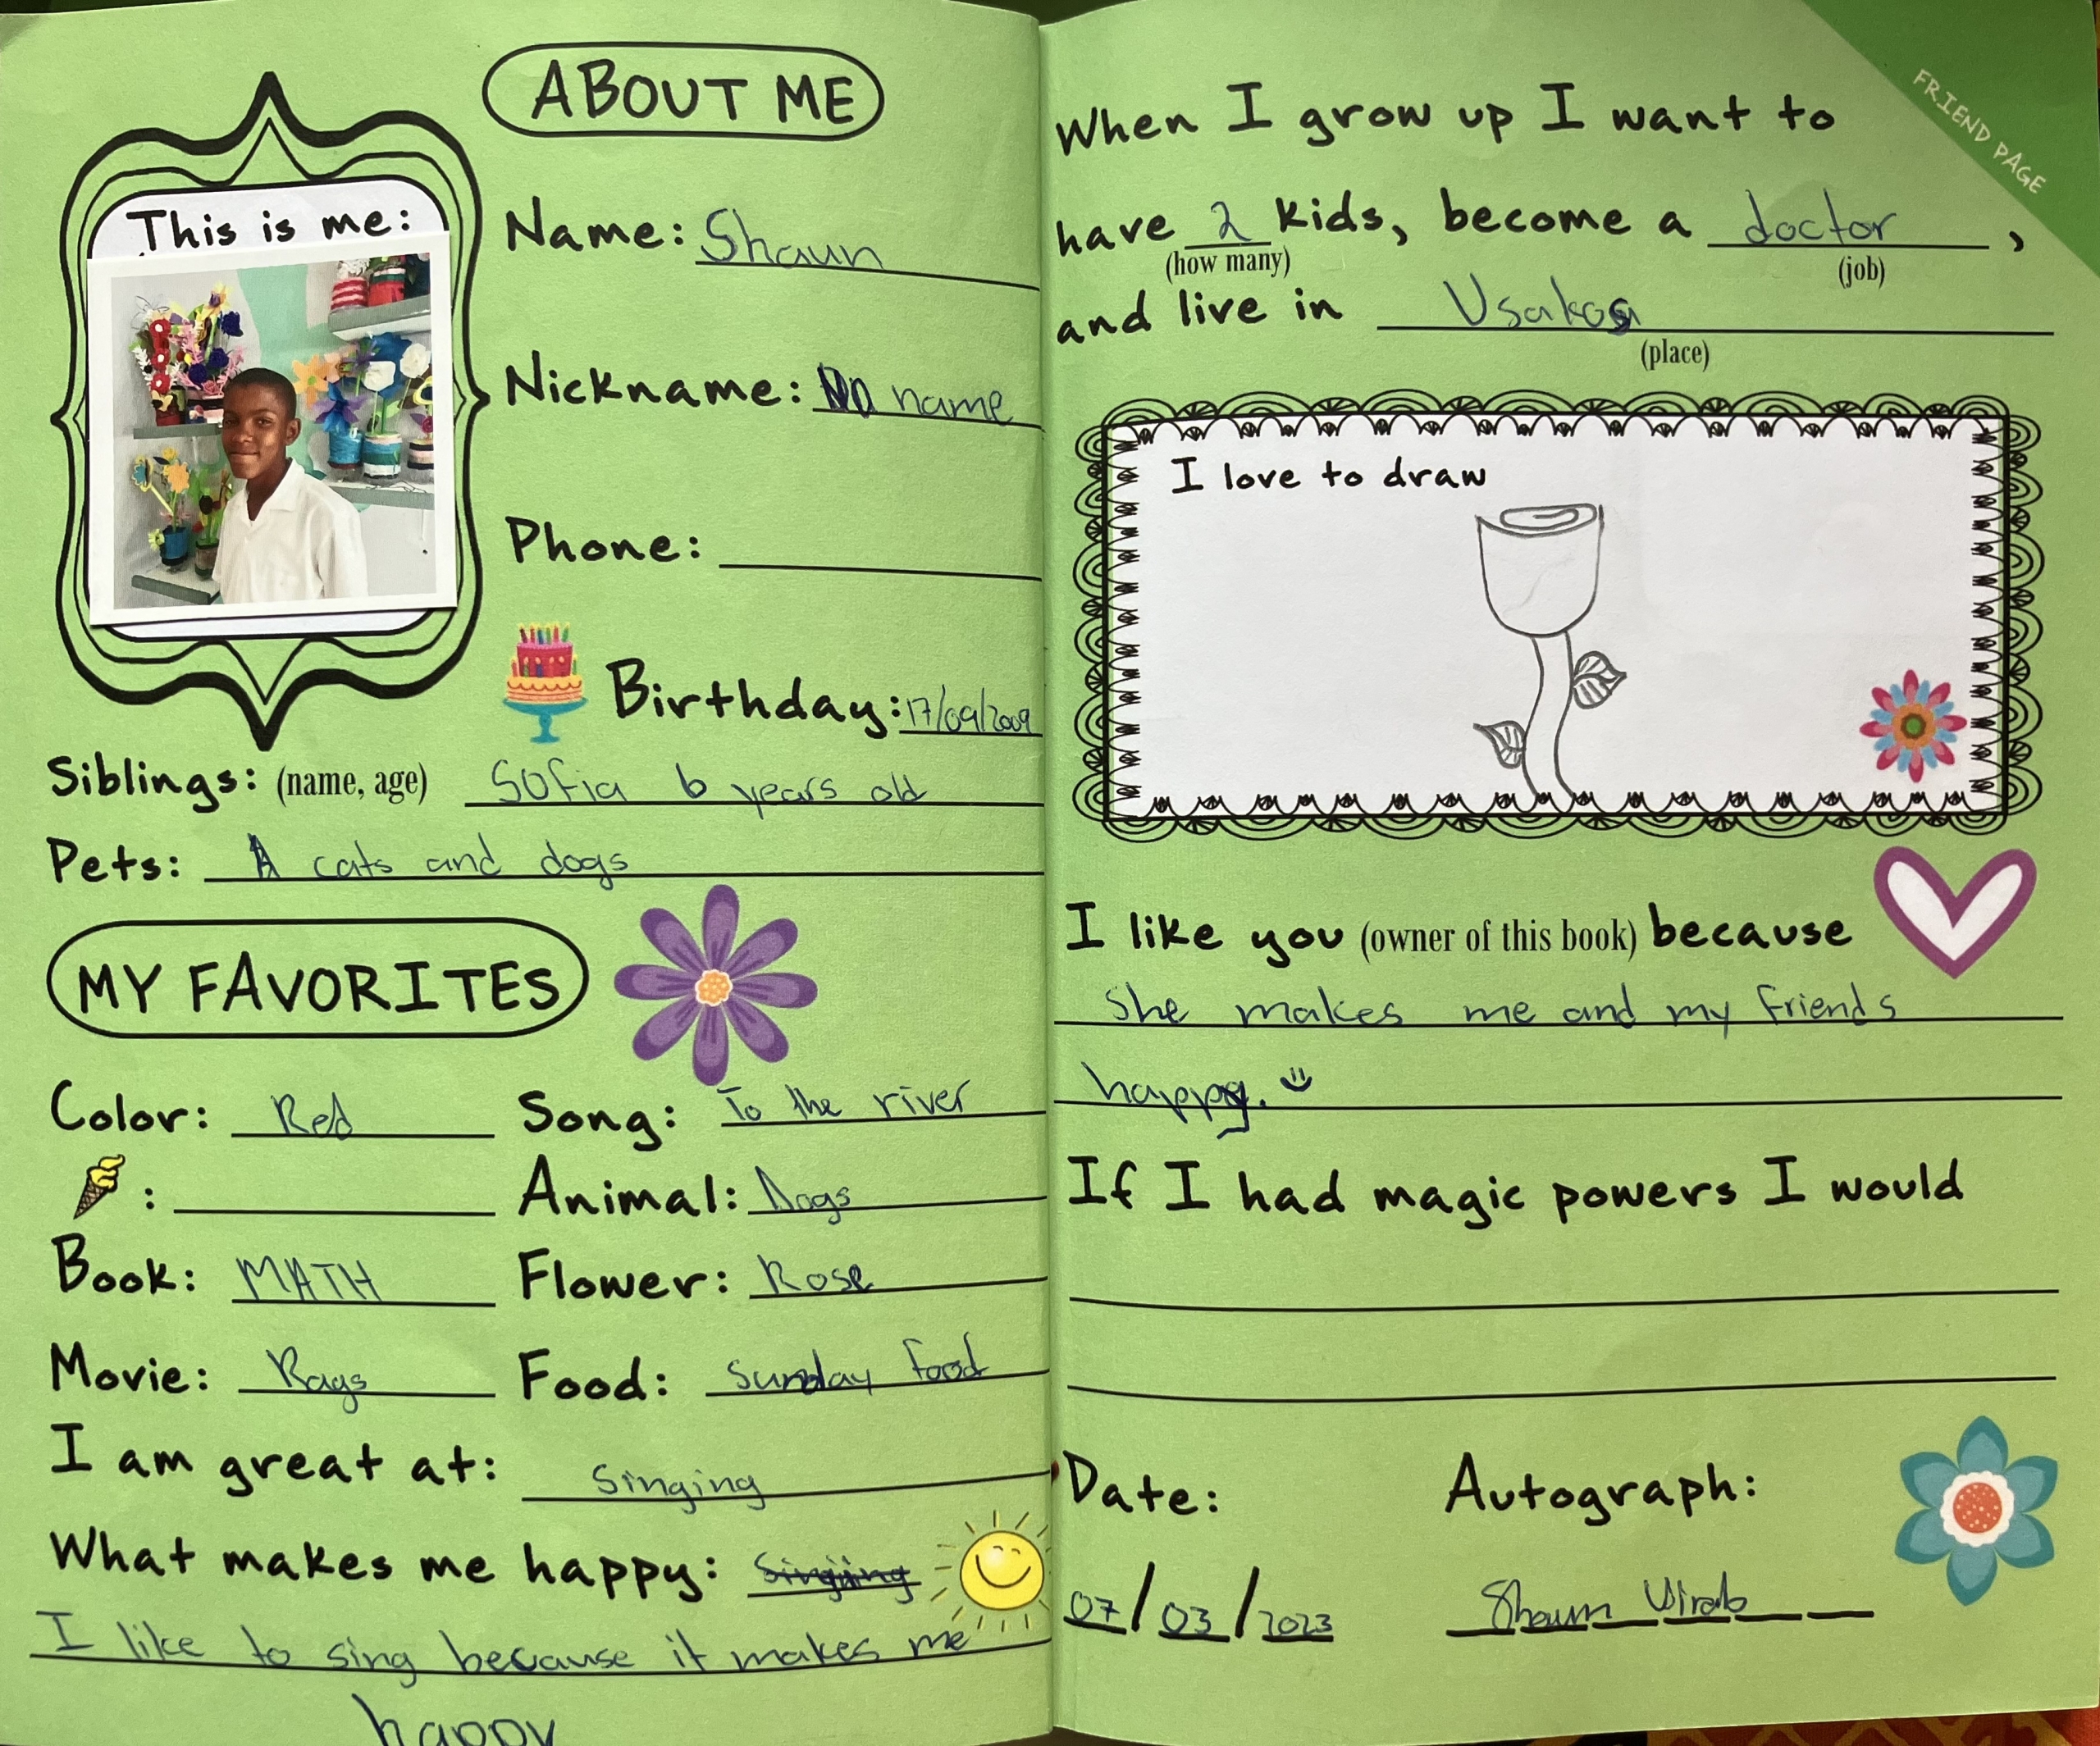 ABOUT ME
This is me:
Name: Shaun
Nickname: No name
Phone:
Birthday: 17/09/2009
Siblings: (name, age) Sofia 6 years old
Pets: A cats and dogs
MY FAVORITES
Color: Red
Song: To the river
:
Animal: Dogs
Book: MATH
Flower: Rose
Movie: Rags
Food: Sunday food
I am great at: Singing
What makes me happy:
I like to sing because it makes me
happy
FRIEND PAGE
When I grow up I want to
have 2 kids, become a doctor,
(how many) (job)
and live in Usakos
(place)
I love to draw
I like you (owner of this book) because
She makes me and my friends
happy.
If I had magic powers I would
Date: Autograph:
07/03/2023 Shaun